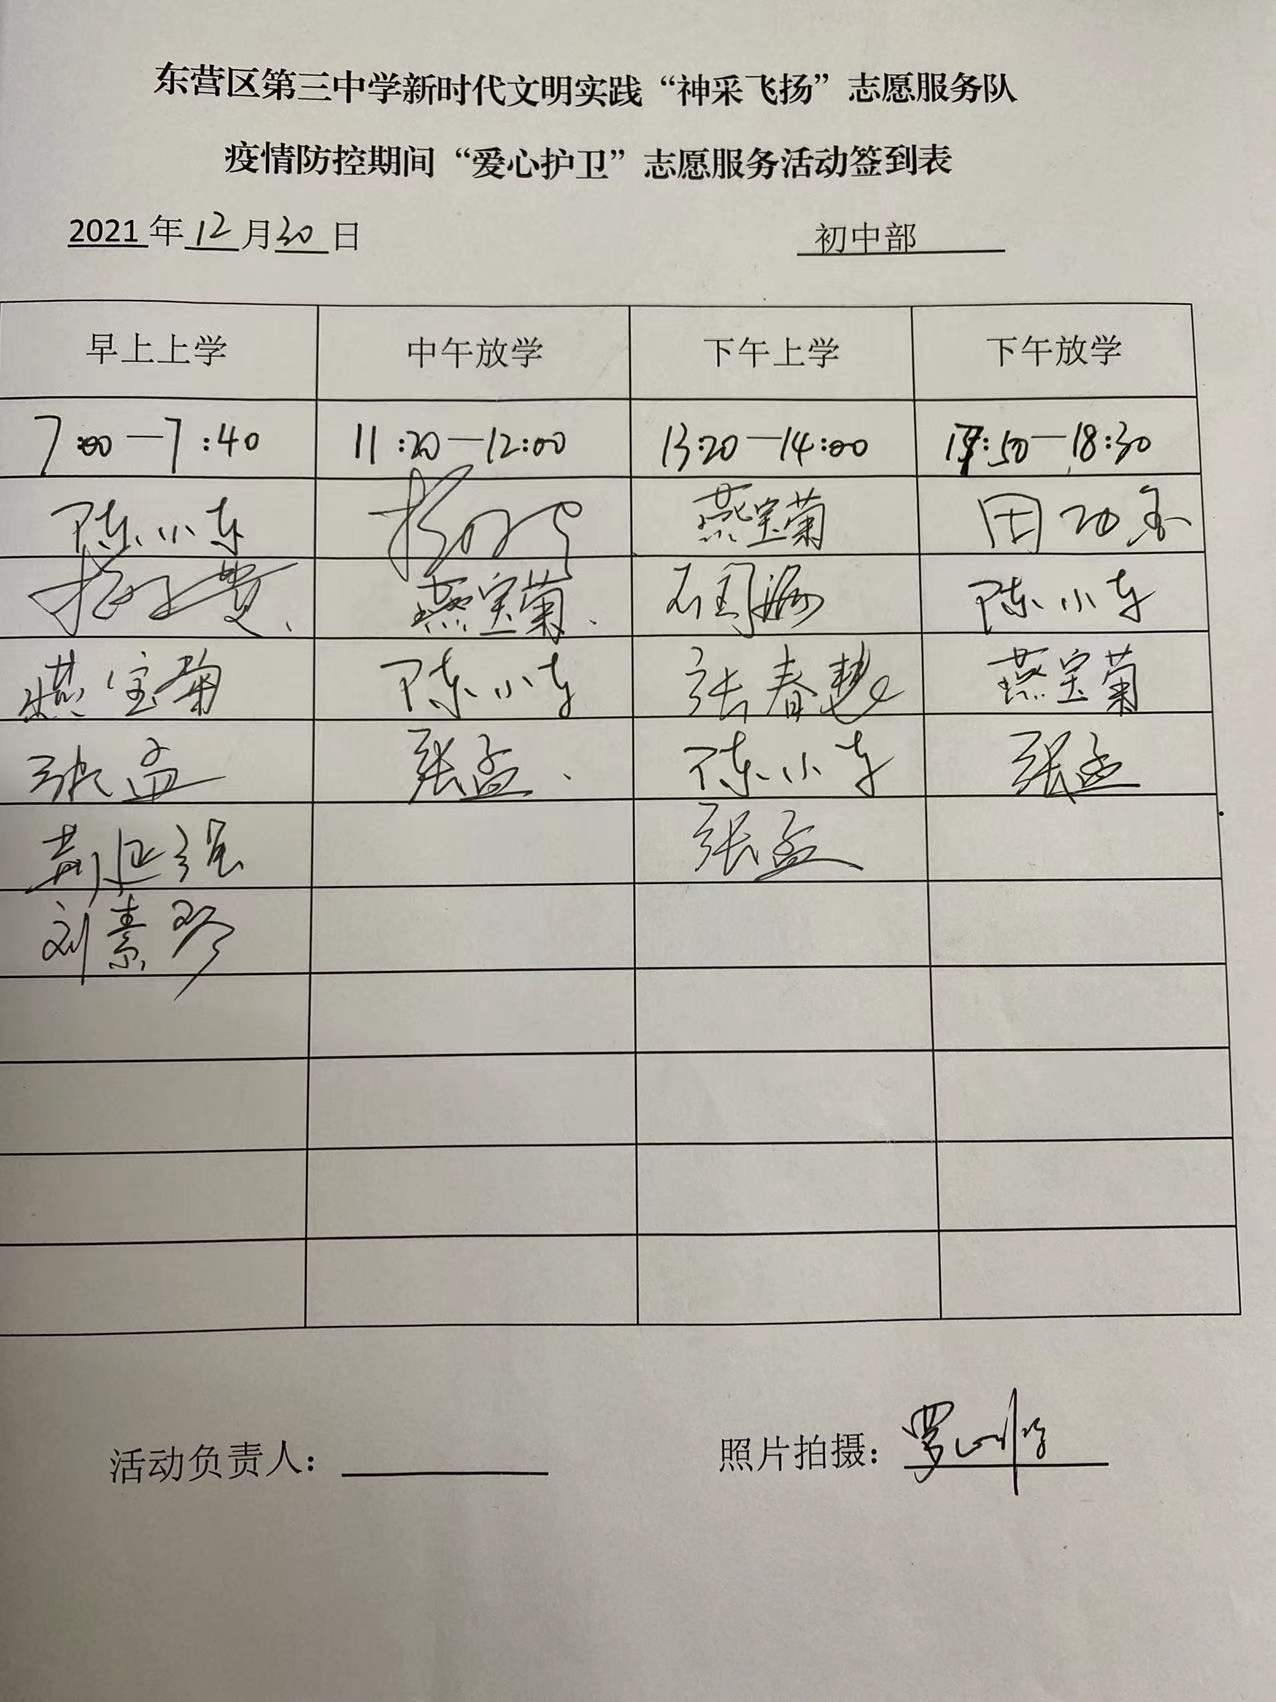 东营区第三中学新时代文明实践“神采飞扬”志愿服务队
疫情防控期间“爱心护卫”志愿服务活动签到表
2021年12月30日 初中部
早上上学 中午放学 下午上学 下午放学
7:00—7:40 11:20—12:00 13:20—14:00 17:50—18:30
陈小东 燕宝菊
燕宝菊 陈小东
燕宝菊 陈小东 张春慧 燕宝菊
张孟 张孟 陈小东 张孟
张孟
刘素琴
活动负责人： 照片拍摄：